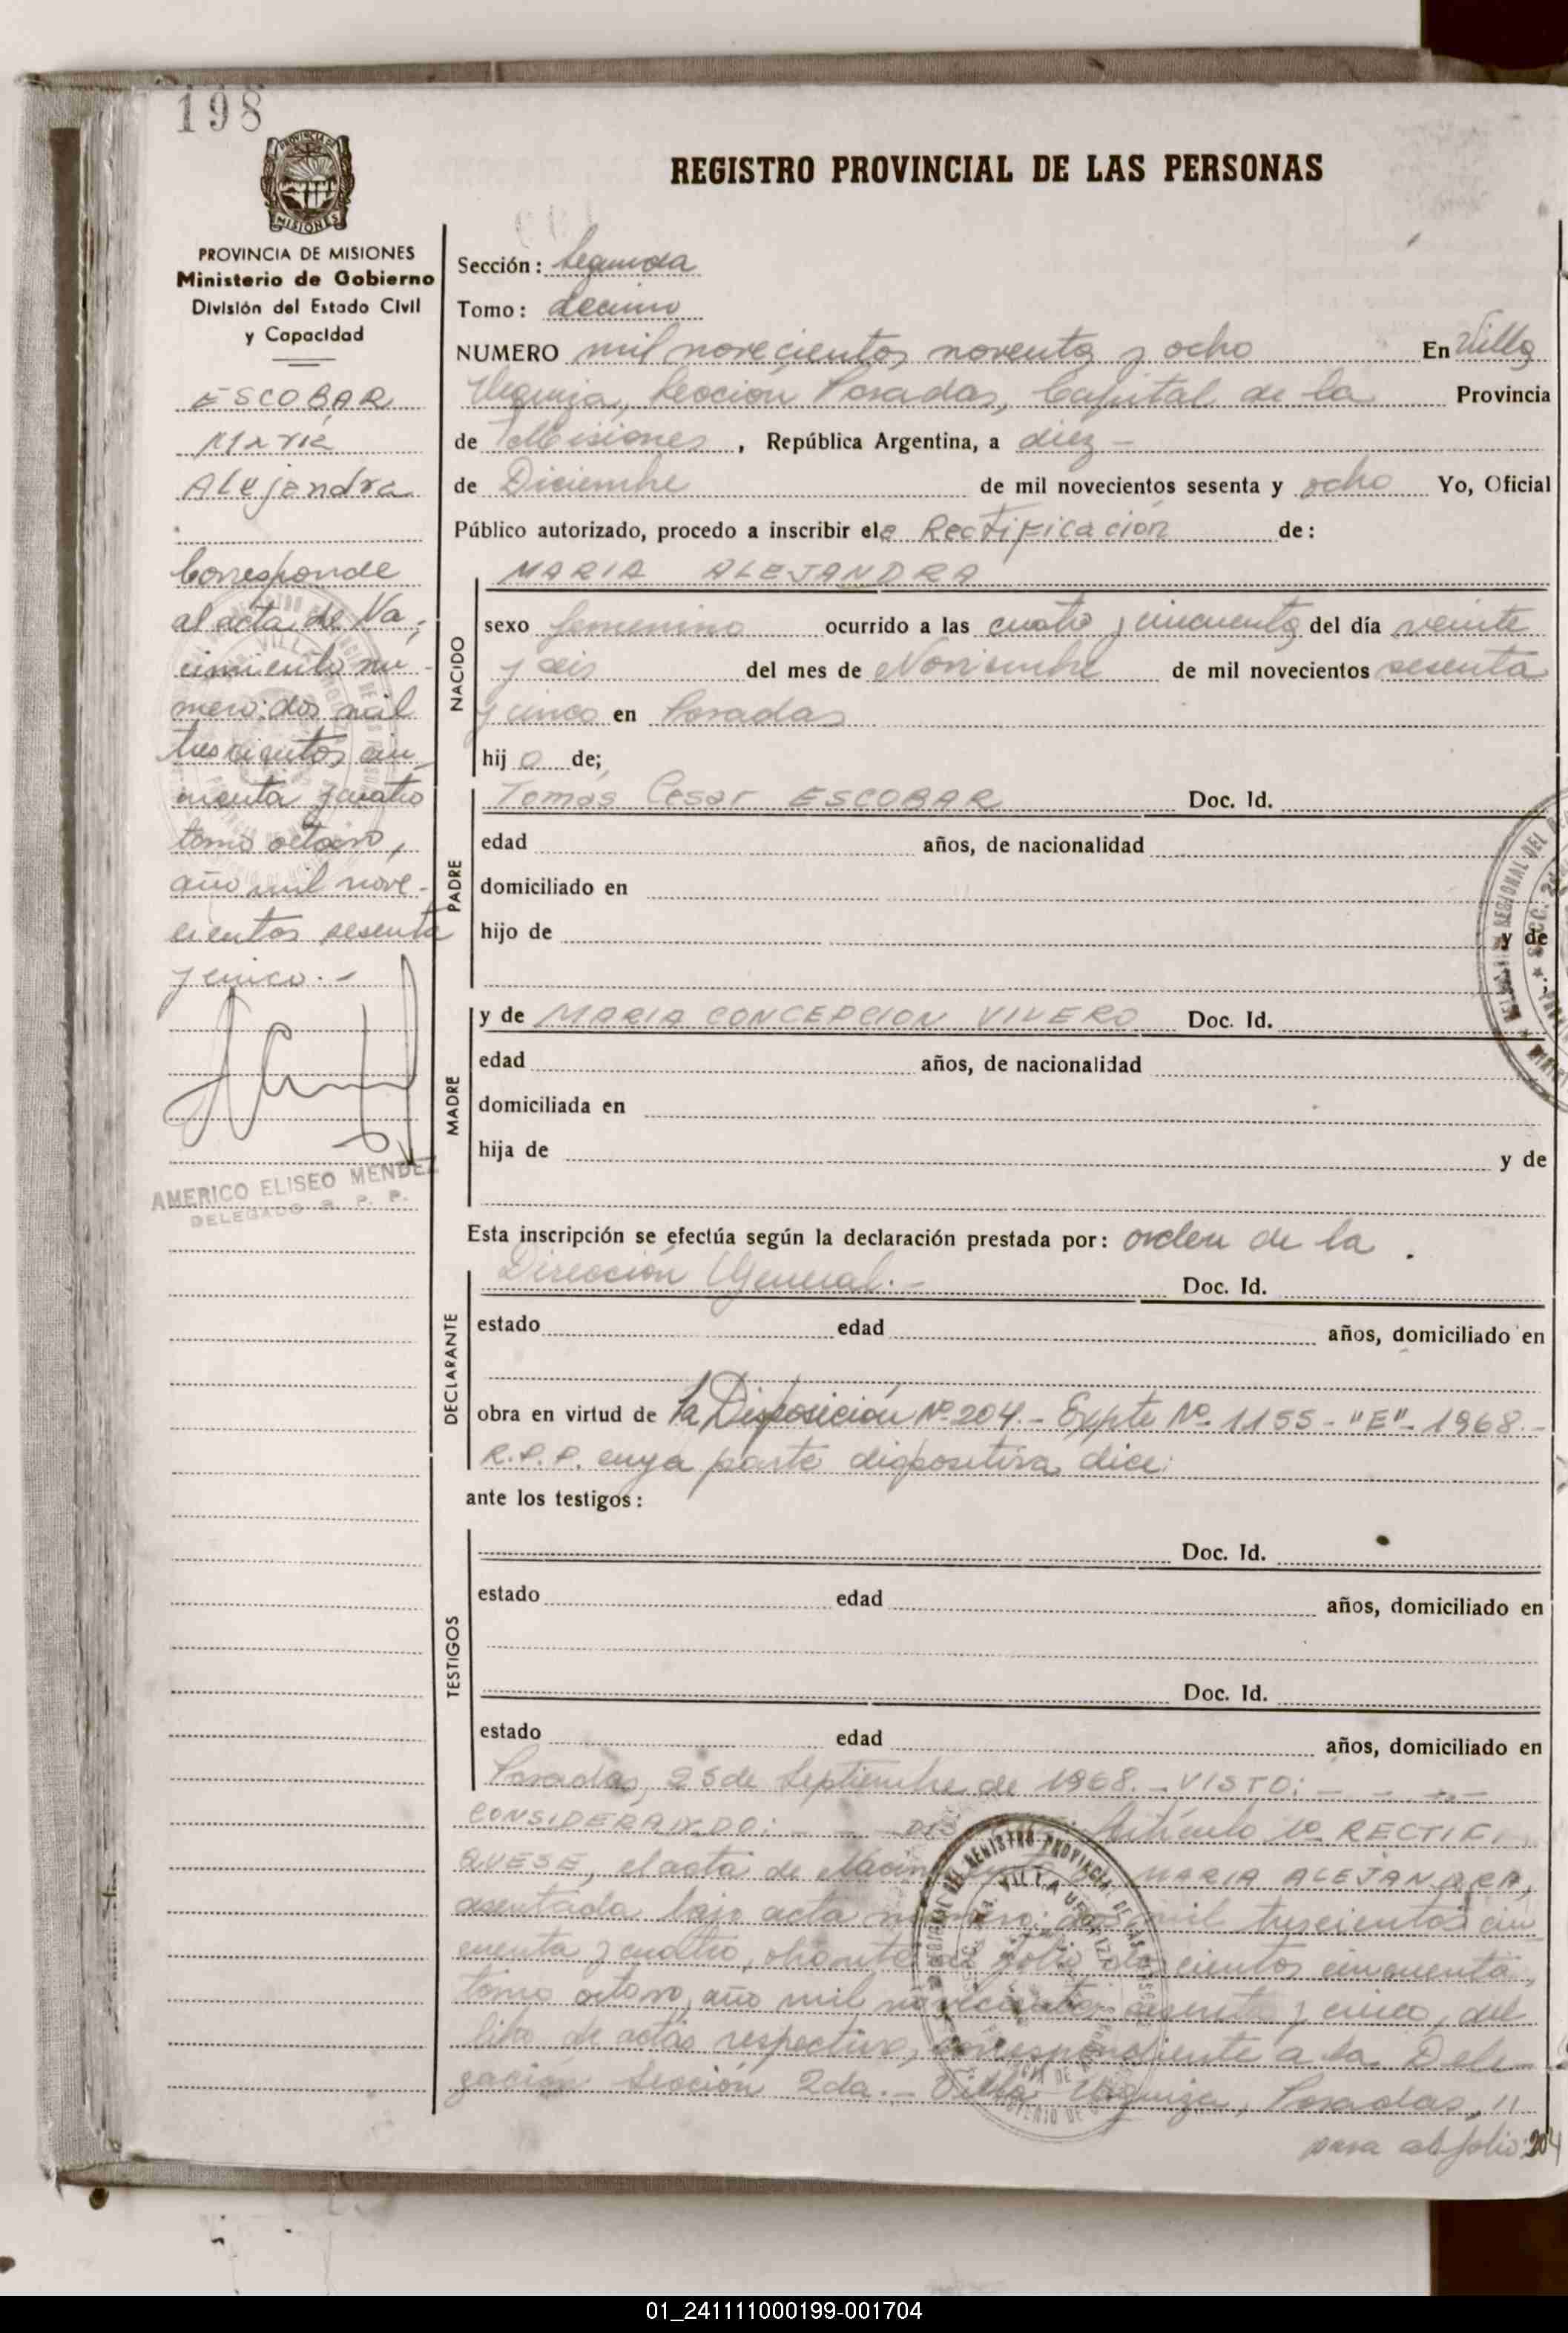 198
PROVINCIA DE MISIONES
Ministerio de Gobierno
División del Estado Civil
y Capacidad
ESCOBAR
María
Alejandra
Corresponde
al acta de Na-
cimiento nú-
mero: dos mil
trescientos cin-
cuenta y cuatro
tomo octavo,
año mil nove-
cientos sesenta
y cinco.-
AMERICO ELISEO MENDEZ
DELEGADO R. P. P.
REGISTRO PROVINCIAL DE LAS PERSONAS
Sección: Segunda
Tomo: decimo
NUMERO mil novecientos noventa y ocho En Villa
Urquiza, Sección Posadas, Capital de la Provincia
de Misiones, República Argentina, a diez -
de Diciembre de mil novecientos sesenta y ocho Yo, Oficial
Público autorizado, procedo a inscribir ela Rectificación de:
MARIA ALEJANDRA
NACIDO
sexo femenino ocurrido a las cuatro y cincuenta del día veinte
y seis del mes de Noviembre de mil novecientos sesenta
y cinco en Posadas
hij a de;
PADRE
Tomás Cesar ESCOBAR Doc. Id.
edad años, de nacionalidad
domiciliado en
hijo de y de
MADRE
y de MARIA CONCEPCION VIVERO Doc. Id.
edad años, de nacionalidad
domiciliada en
hija de y de
Esta inscripción se efectúa según la declaración prestada por: orden de la
DECLARANTE
Dirección General.- Doc. Id.
estado edad años, domiciliado en
obra en virtud de La Disposición Nº 204.- Expte Nº 1155-"E"-1968.-
R.P.P. cuya parte dispositiva dice:
ante los testigos:
TESTIGOS
Doc. Id.
estado edad años, domiciliado en
Doc. Id.
estado edad años, domiciliado en
Posadas, 25 de Septiembre de 1968.- VISTO: - - - -
CONSIDERANDO: - - - Artículo 1º RECTIFI
QUESE, el acta de Nacimiento MARIA ALEJANDRA,
asentada bajo acta número: dos mil trescientos cin
cuenta y cuatro, obrante al folio doscientos cincuenta,
tomo octavo, año mil novecientos sesenta y cinco, del
libro de actas respectivo, correspondiente a la Dele-
gación Sección 2da.- Villa Urquiza, Posadas, "
pasa al folio: 204
01_241111000199-001704